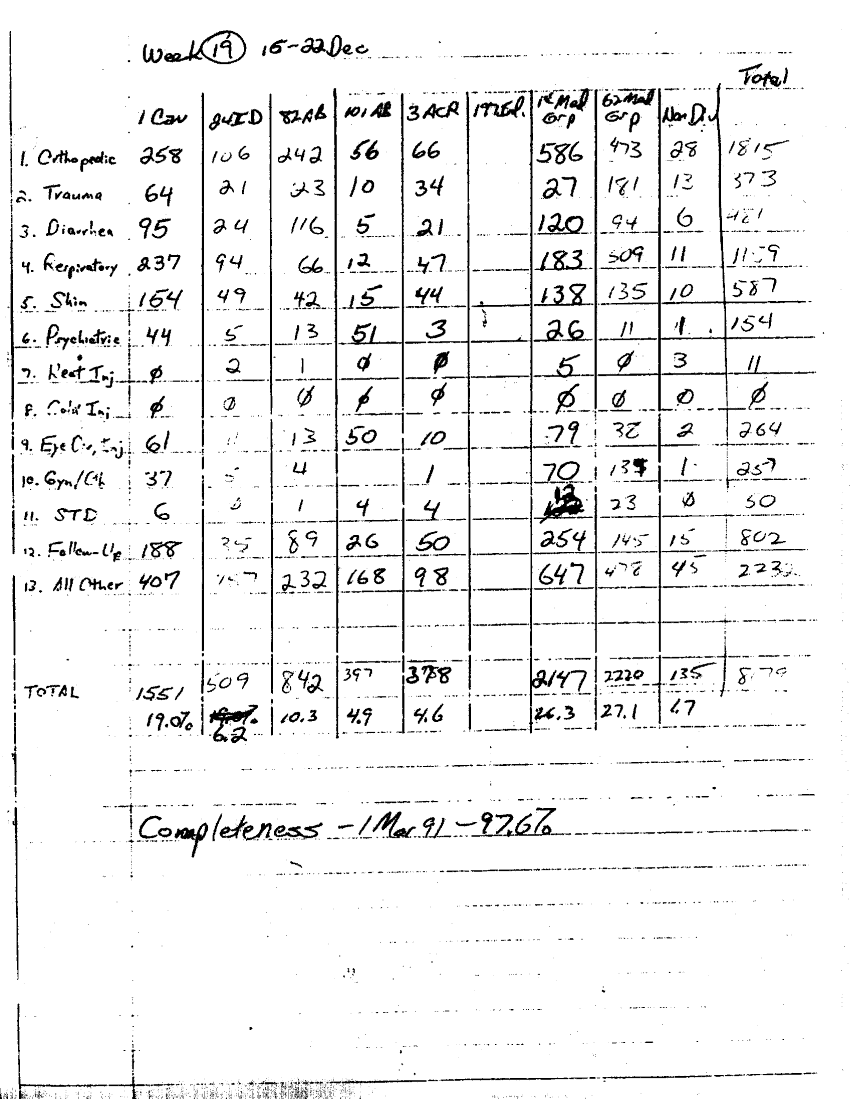 Week 19 15-22 Dec
Total
1 Cav 24ID 82AB 101 AB 3 ACR 1st Med Grp 62 Med Grp Non Div
1. Orthopedic 258 106 242 56 66 586 473 28 1815
2. Trauma 64 21 23 10 34 27 181 13 373
3. Diarrhea 95 24 116 5 21 120 94 6 481
4. Respiratory 237 94 66 12 47 183 509 11 1159
5. Skin 154 49 42 15 44 138 135 10 587
6. Psychiatric 44 5 13 51 3 26 11 1 154
7. Heat Inj Ø 2 1 Ø Ø 5 Ø 3 11
8. Cold Inj Ø Ø Ø Ø Ø Ø Ø Ø Ø
9. Eye 61 13 50 10 79 38 2 264
10. Gyn/OB 37 5 4 1 70 1 257
11. STD 6 Ø 1 4 4 12 23 Ø 50
12. Follow-Up 188 35 89 26 50 254 145 15 802
13. All Other 407 157 232 168 98 647 478 45 2232
TOTAL 1551 509 842 397 378 2147 2220 135
19.0% 6.2 10.3 4.9 4.6 26.3 27.1 1.7
Completeness - 1 Mar 91 - 97.6%